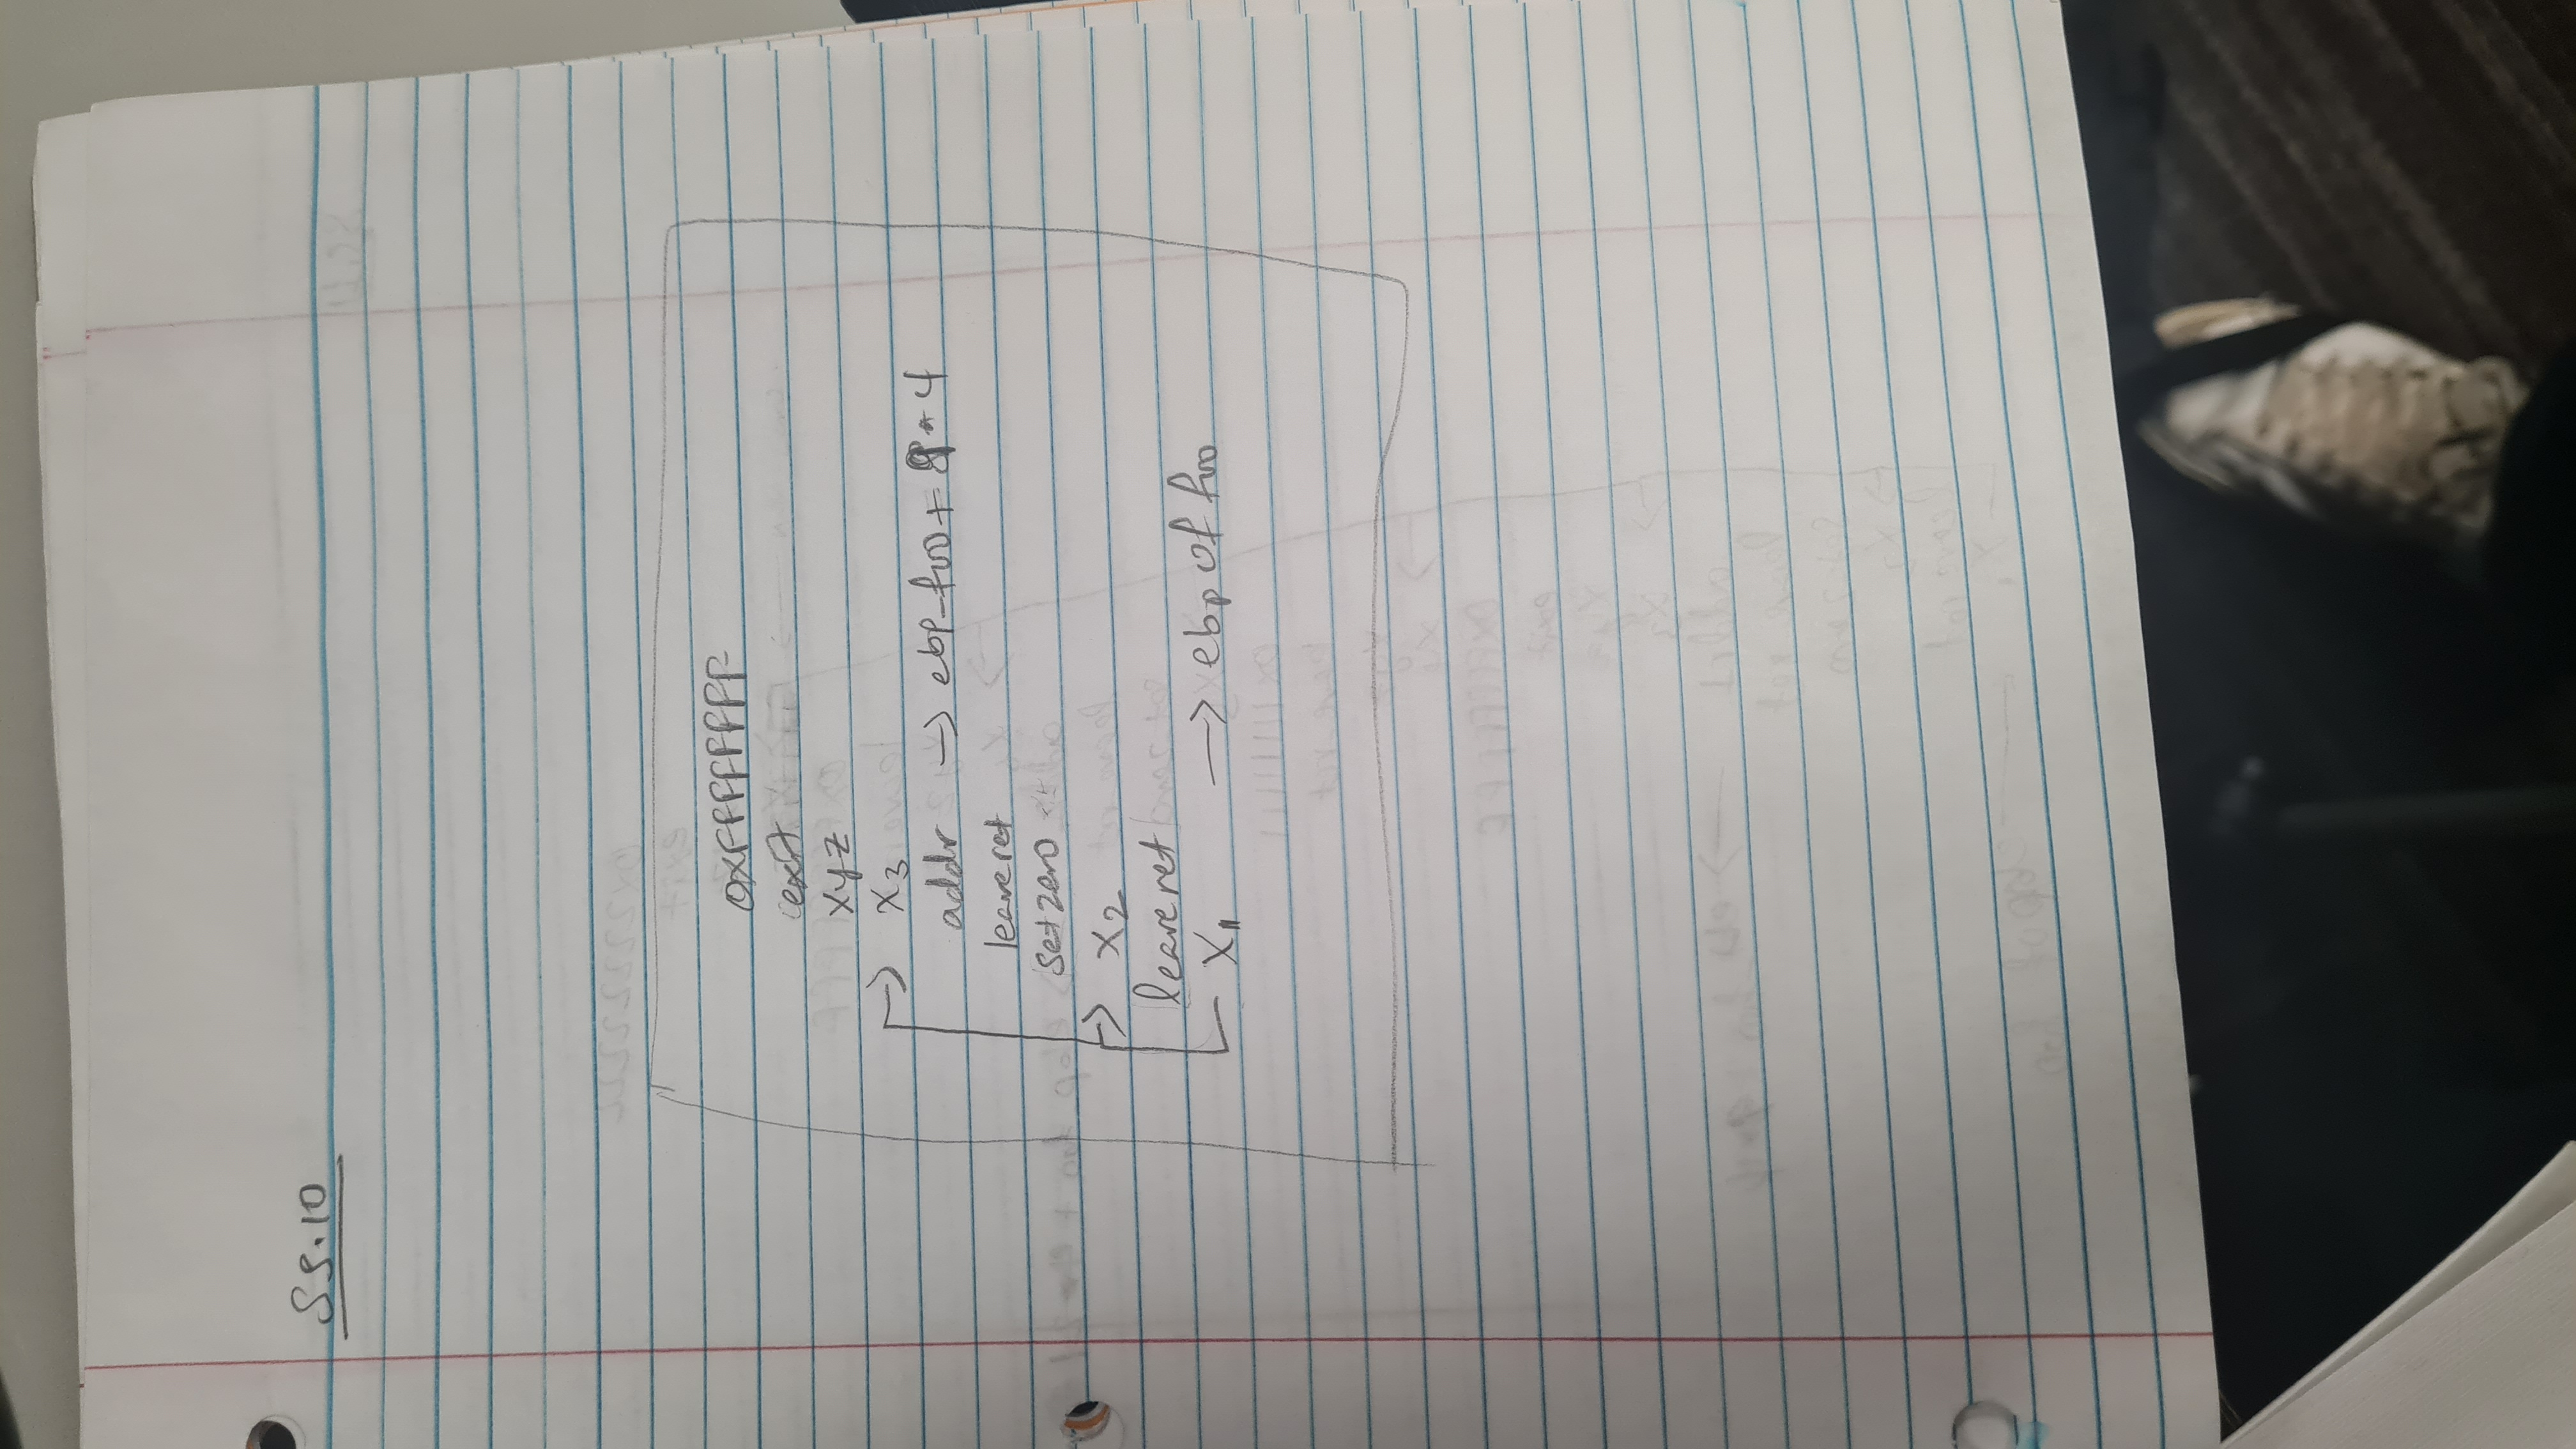 S5.10
0xFFFFFFFF
exit
xyz
→ x3
addr → ebp_foo + 9*4
leaveret
setzero
→ x2
leaveret
x1 → ebp of foo